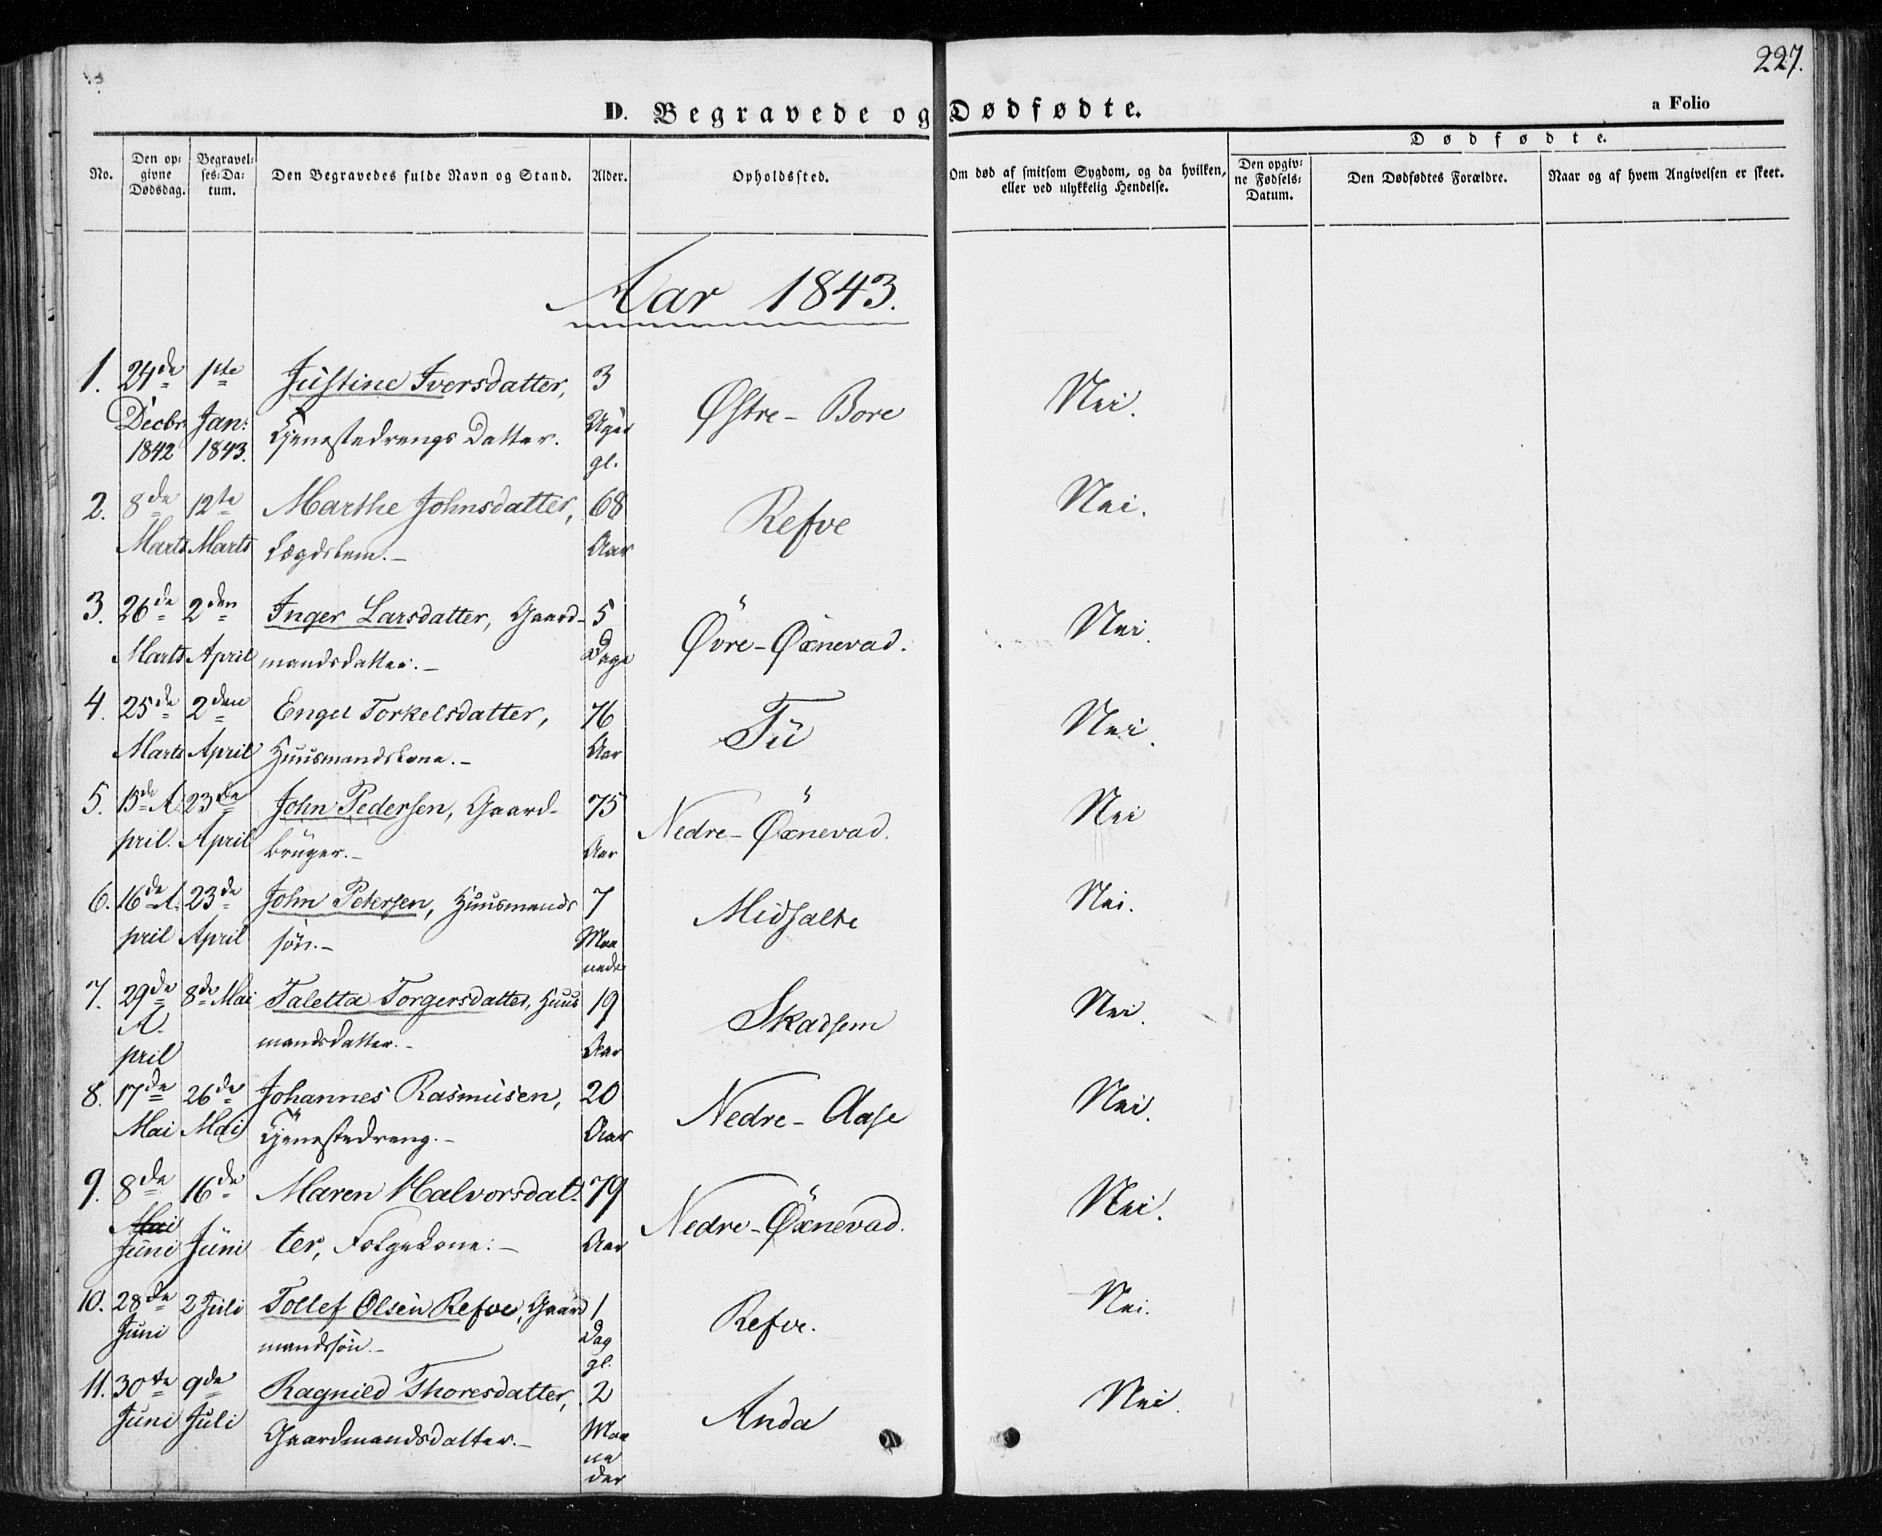 227.
D. Begravede og Dødfødte.
a Folio
No.
Den op-
givne
Dødsdag.
Begravel-
ses-Da-
tum.
Den Begravedes fulde Navn og Stand.
Alder.
Opholdssted.
Om død af smitsom Sygdom, og da hvilken,
eller ved ulykkelig Hendelse.
Dødfødte.
Den opgiv-
ne Fødsels-
Datum.
Den Dødfødtes Forældre.
Naar og af hvem Angivelsen er skeet.
Aar 1843.
1. 24de 1ste Justine Iversdatter, 3 Østre-Bore Nei.
Decbr. Jan: Tjenestedrengs Datter. Uger
1842 1843. gl.
2. 8de 12te Marthe Johnsdatter, 68 Refve Nei.
Marts Marts Lægdslem.- Aar
3. 26de 2den Inger Larsdatter, Gaard- 5 Øvre-Øxnevad. Nei.
Marts April mandsdatter.- Dage
4. 25de 2den Engel Torkelsdatter, 76 Tü Nei.
Marts April Huusmandskone.- Aar
5. 15de A 23de John Pedersen, Gaard- 75 Nedre-Øxnevad. Nei
pril. April brüger.- Aar
6. 16de A. 23de John Petersen, Huusmands 7 Midgalte Nei.
pril April søn.- Maa
neder
7. 29de 8de Mai Taletta Torgersdatter, Huus 19 Skadsem Nei.
A. mandsdatter.- Aar
pril
8. 17de 26de Johannes Rasmüsen, 20 Nedre-Aase Nei.
Mai Mai Tjenestedreng.- Aar
9. 8de 16de Maren Halvorsdat- 79 Nedre-Øxnevad. Nei.
Mai
Juni Jüni ter, Folgekone:- Aar
10. 28de 2 Juli Tollef Olsen Refve, Gaard 1 Refve. Nei.
Juni mandssøn.- Dag
gl.
11. 30te 9de Ragnild Thoresdatter, 2 Anda Nei.
Juni Juli Gaardmandsdatter.- Maa
ne
der